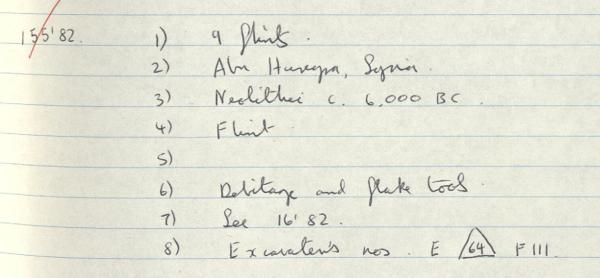 155'82. 1) 9 flints.
2) Abu Hureyra, Syria.
3) Neolithic c. 6,000 BC.
4) Flint
5)
6) Debitage and flake tools.
7) See 16'82.
8) Excavator's nos. E 64 F111.